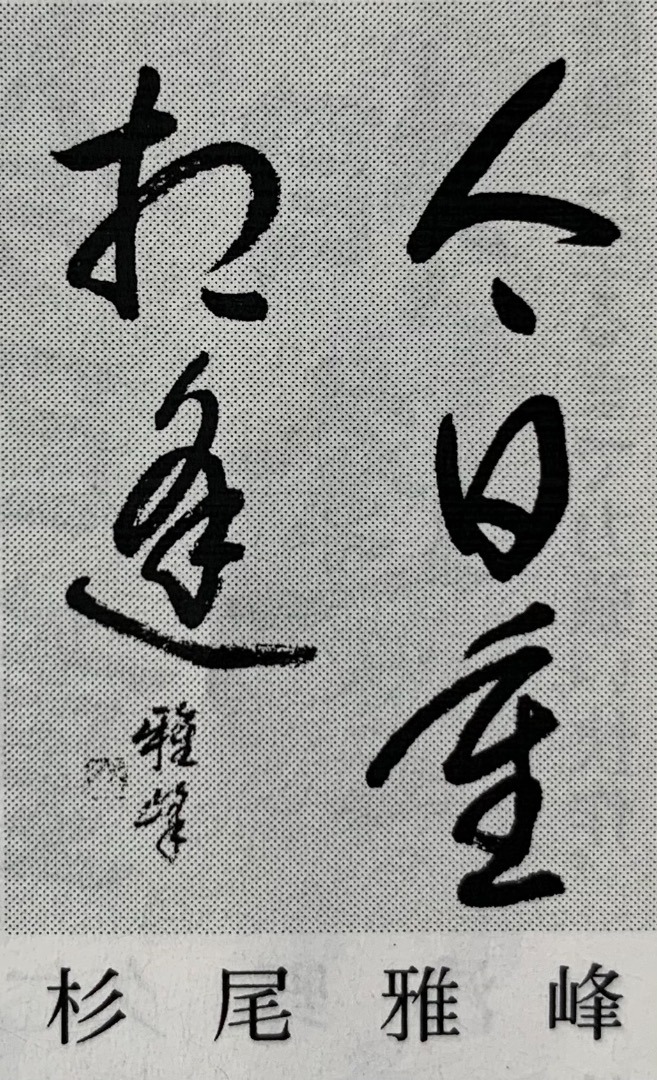 今日重
相逢
雅峰
杉尾雅峰